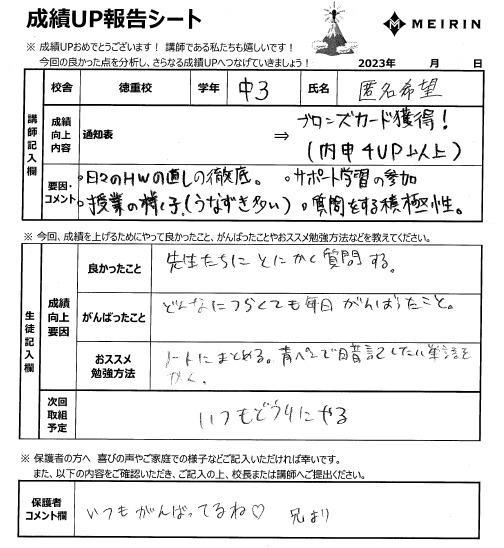 成績UP報告シート
MEIRIN
※ 成績UPおめでとうございます！ 講師である私たちも嬉しいです！
今回の良かった点を分析し、さらなる成績UPへつなげていきましょう！
2023年 月 日
校舎 徳重校 学年 中3 氏名 匿名希望
講師記入欄
成績向上内容 通知表 ⇒ ブロンズカード獲得！
(内申4UP以上)
要因・コメント
・日々のHWの直しの徹底。 ・サポート学習の参加
・授業の様子(うなずき多い) ・質問をする積極性。
※ 今回、成績を上げるためにやって良かったこと、がんばったことやおススメ勉強方法などを教えてください。
生徒記入欄
成績向上要因
良かったこと 先生たちにとにかく質問する。
がんばったこと どんなにつらくても毎日がんばったこと。
おススメ勉強方法 ノートにまとめる。青ペンで暗記したい単語を
かく。
次回取組予定 いつもどうりにやる
※ 保護者の方へ 喜びの声やご家庭での様子などご記入いただければ幸いです。
また、以下の内容をご確認いただき、ご記入の上、校長または講師へご提出ください。
保護者コメント欄 いつもがんばってるね♡ 兄より